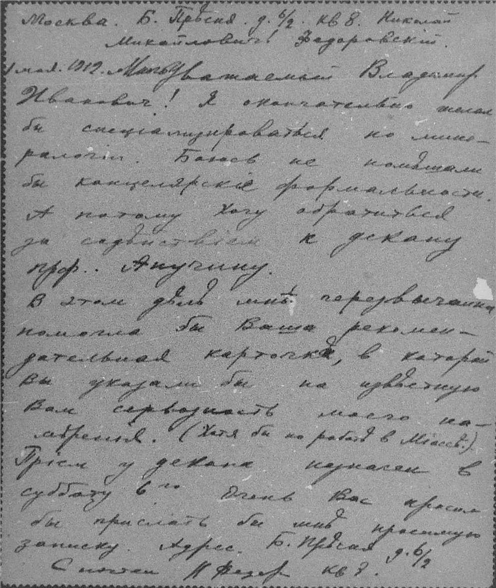 Москва. Б. Прѣсня. д. 6/2. кв 8. Николай
Михайлович Федоровскій.
1 мая. 1912. Многоуважаемый Владимир
Иванович! Я окончательно желал
бы специализироваться по мине-
ралогіи. Боюсь не помѣшали
бы канцелярскіе формальности.
А потому хочу обратиться
за содѣйствіем к декану
прф.. Анучину.
В этом дѣлѣ мнѣ черезвычайно
помогла бы Ваша рекомен-
дательная карточка, в которой
Вы указали бы на извѣстную
Вам серьозность моего на-
мѣренія. (Хотя бы по работѣ в Міассѣ.)
Пріем у декана назначен в
субботу 6го Очень Вас просил
бы прислать бы мнѣ просимую
записку. Адрес. Б. Прѣсня д. 6/2
С почтен Н Федор кв 8.